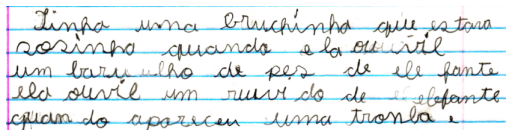 Tinha uma bruchinha que estava
sosinha quando ela ouvil
um baru ulho de pes de ele fante
ela ouvil um ruuvi do de elefante
quan do apareceu uma tronba.